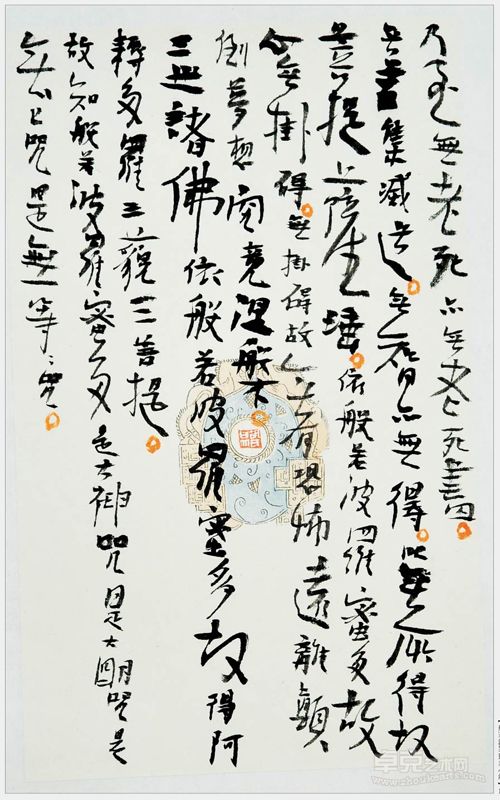 乃至無老死亦無老死盡
無苦集滅道無智亦無得以無所得故
菩提薩埵依般若波羅蜜多故
心無掛礙無掛礙故無有恐怖遠離顛
倒夢想究竟涅槃
三世諸佛依般若波羅蜜多故得阿
耨多羅三藐三菩提
故知般若波羅蜜多是大神咒是大明咒是
無上咒是無等等咒
卓克艺术网